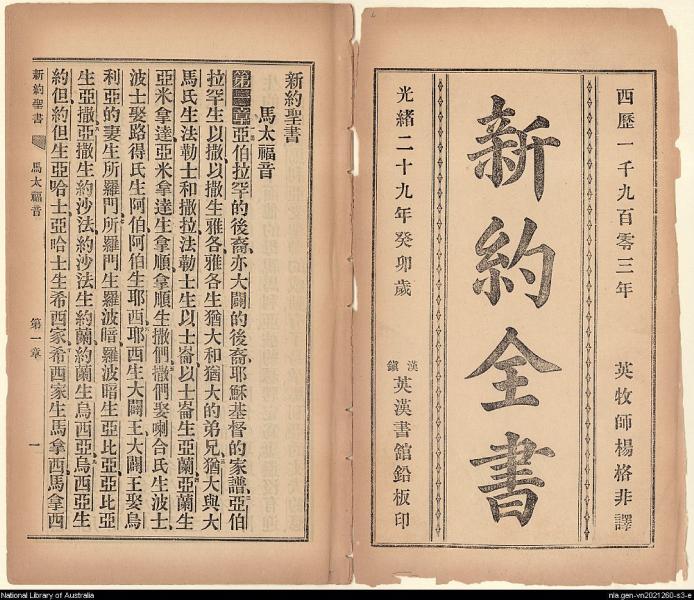 西歷一千九百零三年
英牧師楊格非譯
新約全書
光緒二十九年癸卯歲
漢鎮英漢書館鉛板印
新約聖書
馬太福音
第一章亞伯拉罕的後裔、亦大闢的後裔、耶穌基督的家譜、亞伯
拉罕生以撒、以撒生雅各、雅各生猶大和猶大的弟兄、猶大與大
馬氏生法勒士和撒拉、法勒士生以士崙、以士崙生亞蘭、亞蘭生
亞米拿達、亞米拿達生拿順、拿順生撒們、撒們娶喇合氏生波士、
波士娶路得氏生阿伯、阿伯生耶西、耶西生大闢王、大闢王娶烏
利亞的妻生所羅門、所羅門生羅波暗、羅波暗生亞比亞、亞比亞
生亞撒、亞撒生約沙法、約沙法生約蘭、約蘭生烏西亞、烏西亞生
約但、約但生亞哈士、亞哈士生希西家、希西家生馬拿西、馬拿西
新約聖書 馬太福音 第一章 一
National Library of Australia
nla.gen-vn2021260-s3-e